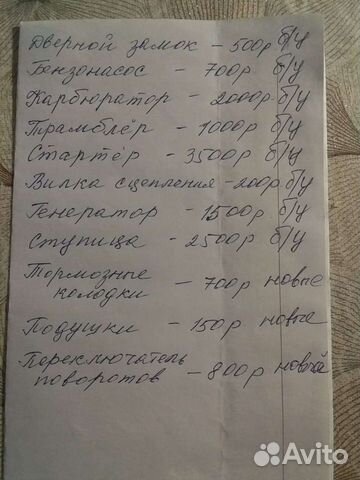 Дверной замок - 500р б/у
Бензонасос - 700р б/у
Карбюратор - 2000р б/у
Трамблёр - 1000р б/у
Стартёр - 3500р б/у
Вилка сцепления - 200р б/у
Генератор - 1500р б/у
Ступица - 2500р б/у
Тормозные
колодки - 700р новые
Подушки - 150р новые
Переключатель
поворотов - 800р новый
Avito